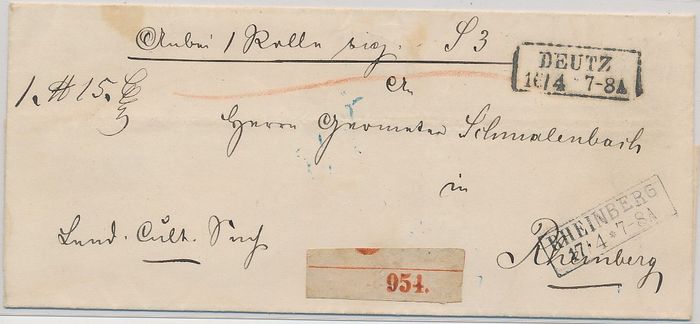 Anbei 1 Rolle sig. S 3
DEUTZ
16/4 * 7-8A
1. ℔ 15.
An
Herrn Geometer Schmalenbach
in
RHEINBERG
17/4 * 7-8A
Land. Cult. Sach
Rheinberg
954.